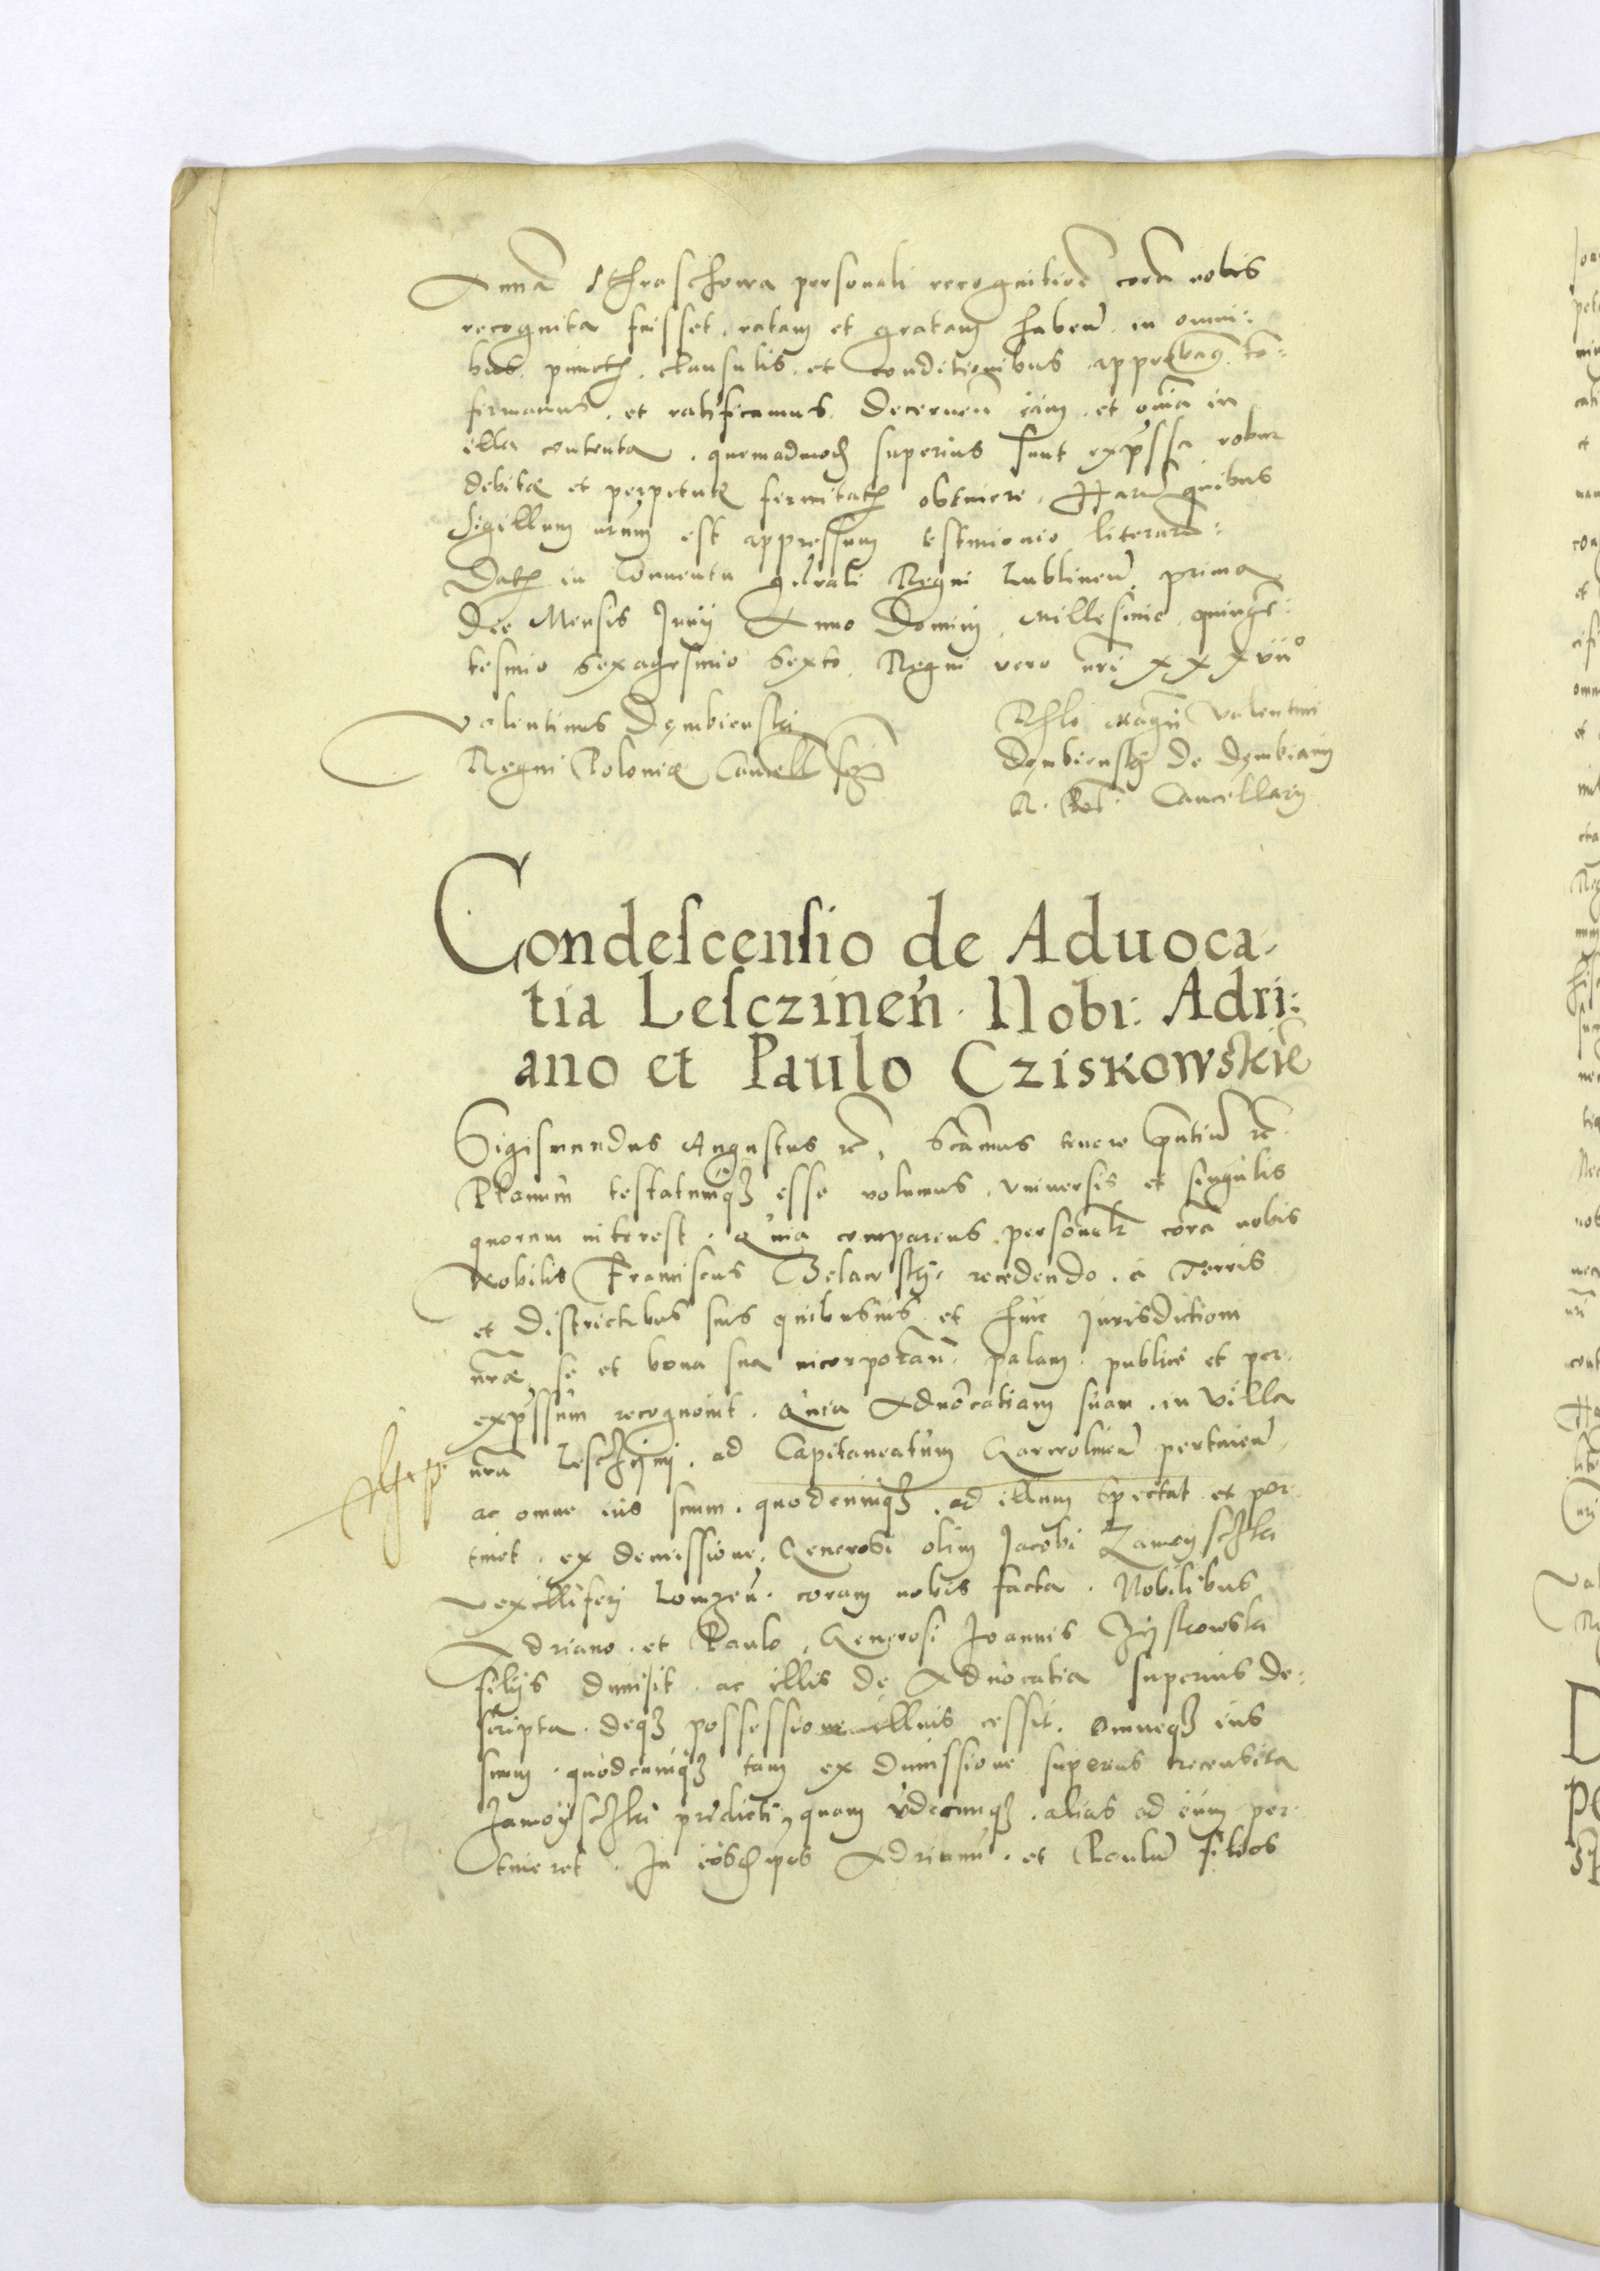 Anna Schraschowa personali recognitioē corā nobis
recognita fuisset, ratam et gratam habeñ. in omni:
bus. punctꝭ. clausulis. et conditionibus approbam9. cō:
firmamus. et ratificamus. Decerneñ eam. et oīa in
illa contenta. quemadmodū superius sunt exp̄ssa robur
debitæ et perpetuæ firmitatꝭ obtinere. Harū quibus
Sigillum nrūm est appressum testimonio literarū:
Datꝭ in Conuentu gn̄rali Regni Lublineñ. prima
die Mensis Junij Anno Domini. Millesimo. quingē:
tesimo sexagesimo sexto. Regni vero nrī XXXVII°
Valentinus Dęmbienski
Regni Poloniæ Cancell
Rlo Magci Valentini
Dembienskÿ de Dembiani
R. Pol: Cancellarij
Condescensio de Aduoca-
tia Lesczineñ. Nobi: Adri:
ano et Paulo Cziskowskiē
Sigismundus Augustus rē, Sōamus tenore pn̄tiū rē.
Planum testatumqꝫ esse volumus, vniuersis et singulis
quorum interest. Quia comparens personalr corā nobis
Nobilis Franciscus Belawskÿ, recedendo. à Terris
et Districtibus suis quibusuis et huic Jurisdictioni
nrāe, se et bona sua incorporañ. palam. publicè et per
exp̄ssum recognouit. Quia Aduocatiam suam. in villa
nrā Lesczÿni, ad Capitaneatum Garwolineñ pertineñ,
ac omne ius suum. quodcumqꝫ. ad illum spectat et per
tinet. ex demissione. Generosi olim Jacobi Zamoÿschki
vexilliferj Lomzeñ. coram nobis facta. Nobilibus
Adriano. et Paulo, Generosi Joannis Czÿskowski
filijs dimisit. ac illis de Aduocatia superius de:
scripta. deqꝫ possessione illius cessit. Omneqꝫ ius
suum. quodcumqꝫ tam ex dimissione superius recensita
Zamoÿschki prædicti, quam vdecumqꝫ. alias ad eum per
tineret. In eosdem ip̄os Adrianū. et Paulū filios